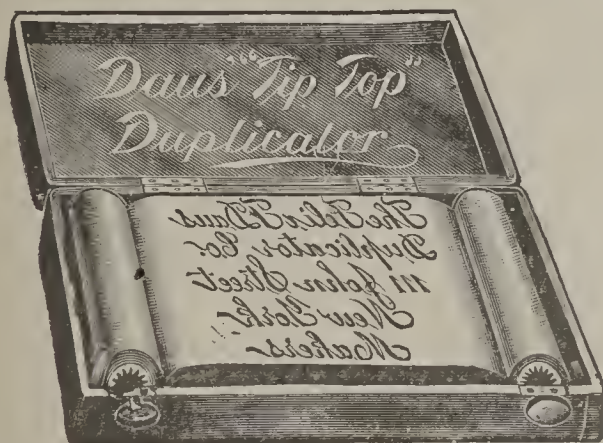 Daus "Tip Top"
Duplicator
The Felix F Daus
Duplicator Co.
111 John Street
New York
Makers